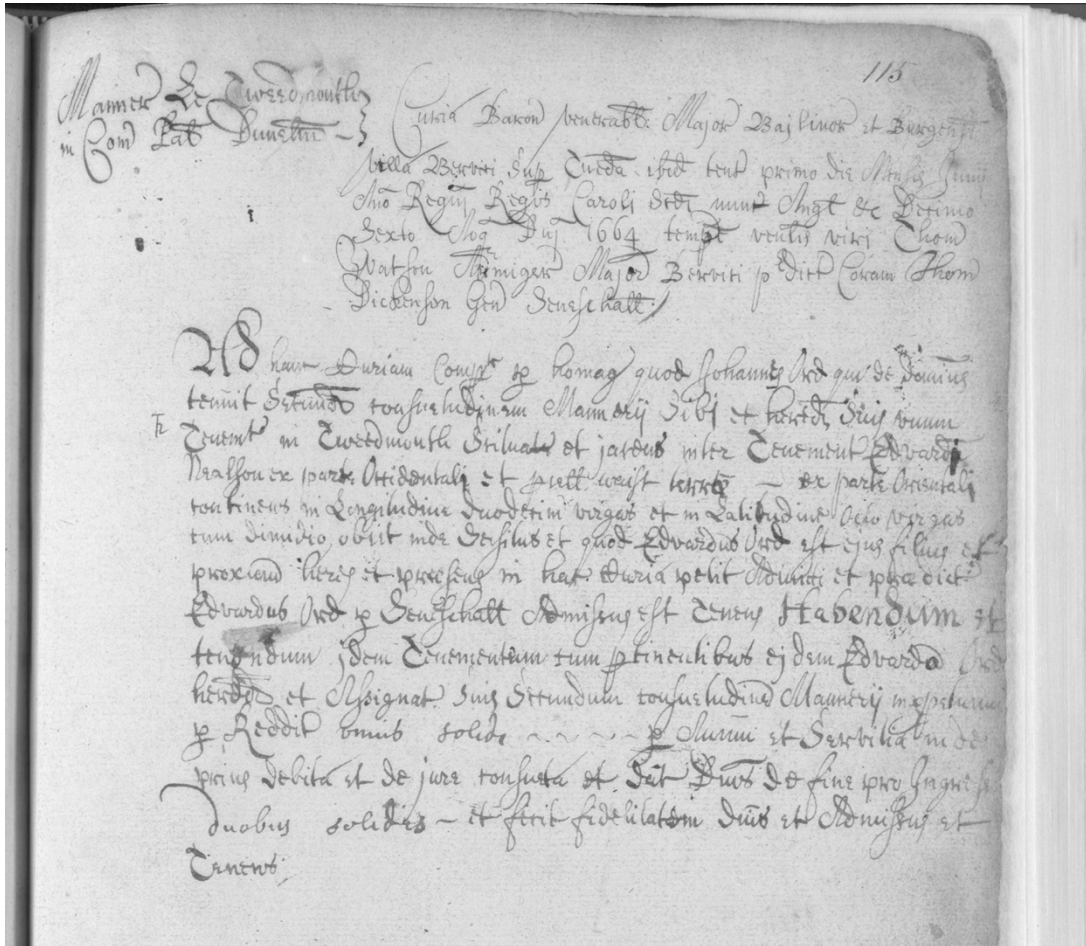 115
Manner de Tweedmouth
in Com Pall Dunelm
Curia Baron venerabli Major Baylivor et Burgens
villa Bervici Sup Tueda ibid tent primo die Mensis Junij
Ano Regni Regis Caroli Secdi nunc Angl &c Decimo
Sexto Anoq Dnj 1664 tempe venlis viri Thom
Watson Armiger Major Bervici p dict Coram Thom
Dickenson Gen Seneschall
Ad hanc Curiam Comp est p homag quod Johannes Ord qui de Dominis
tenuit Secund consuetudinem Mannerij Sibj et hered Suis unum
Tenemt in Tweedmouth Scituat et jacens inter Tenement Edvardi
Nealson ex parte Occidentali et wast terre — ex parte Orientali
continens in Longitudine duodecim virgas et in Latitudine Octo virgas
cum dimidio obiit inde Seisitus et quod Edvardus Ord est ejus filius et
proximus heres et presens in hac Curia petit Admitti et predict
Edvardus Ord p Seneschall Admissus est Tenens Habendum et
tenendum jdem Tenementum cum ptinentibus ejdem Edvardo Ord
hered et Assignat Suis Secundum consuetudine Mannerij imppetuum
p Reddit unius solid ~ ~ ~ ~ p Annu et Servitia inde
prius debita et de jure consueta et Dat Dnis de fine pro Ingressu
duobus solides — et fecit fidelitatem Dnis et Admissus et
Tenens